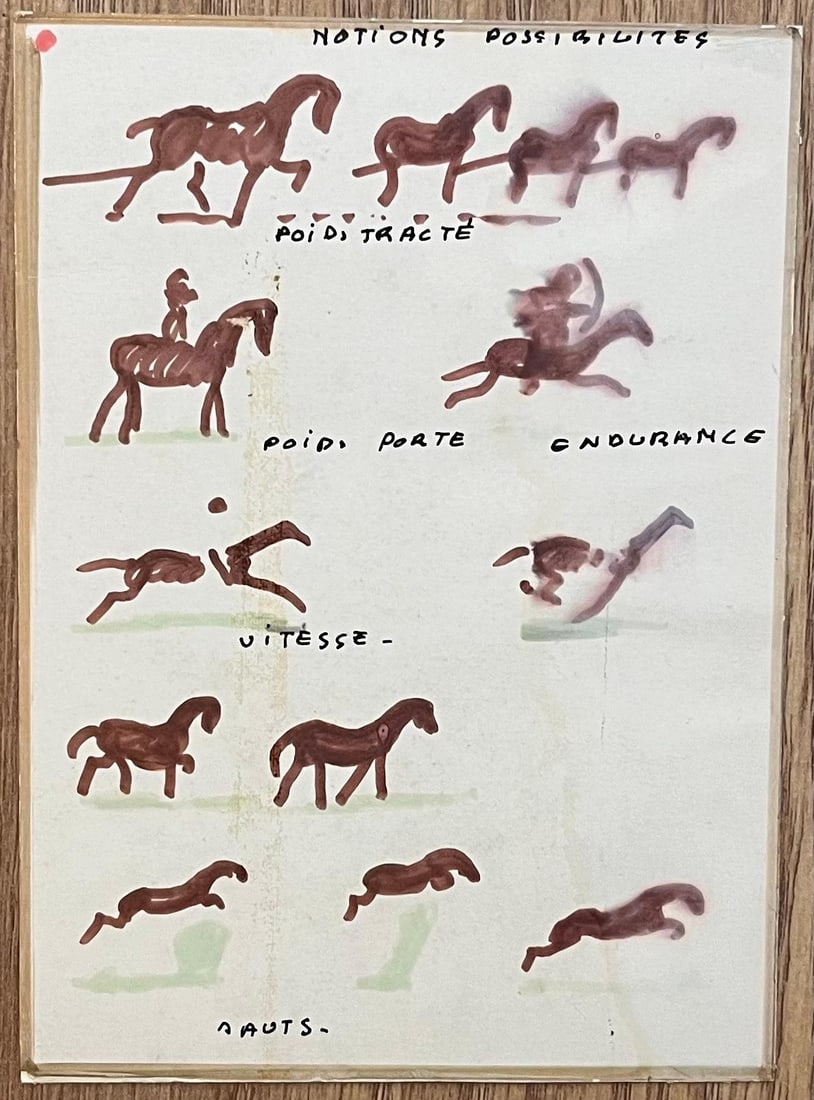 NOTIONS POSSIBILITES
POIDS TRACTÉ
POIDS PORTE ENDURANCE
VITESSE -
SAUTS -